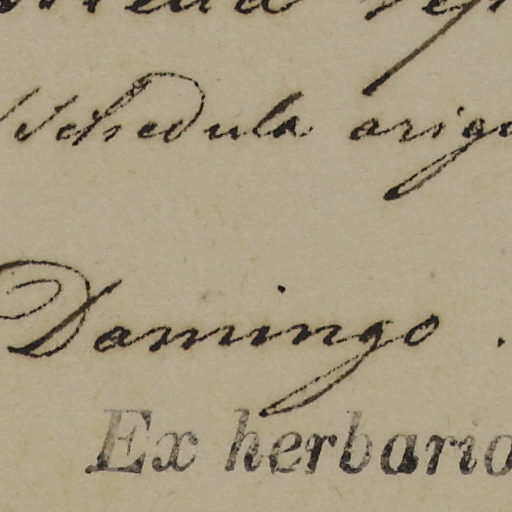 Schedula orig
Domingo.
Ex herbario